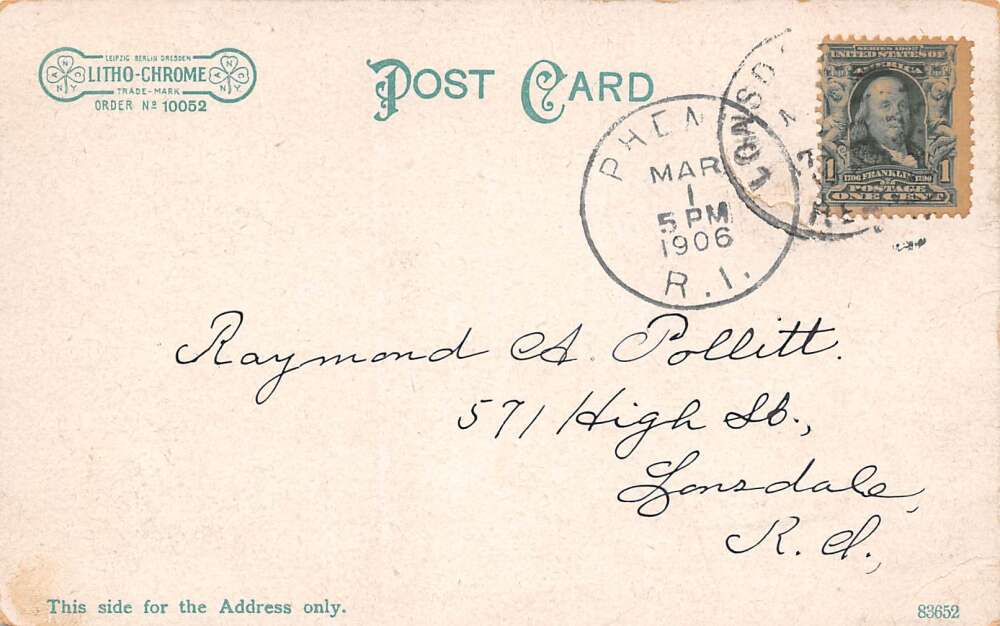 LEIPZIG BERLIN DRESDEN
LITHO-CHROME
TRADE-MARK
ORDER Nº 10052
POST CARD
MAR
1
5 PM
1906
R.I.
SERIES 1902
UNITED STATES OF
AMERICA
1706 FRANKLIN 1790
1 1
POSTAGE
ONE CENT
Raymond A. Pollitt.
571 High St.,
Lonsdale,
R.I.,
This side for the Address only.
83652